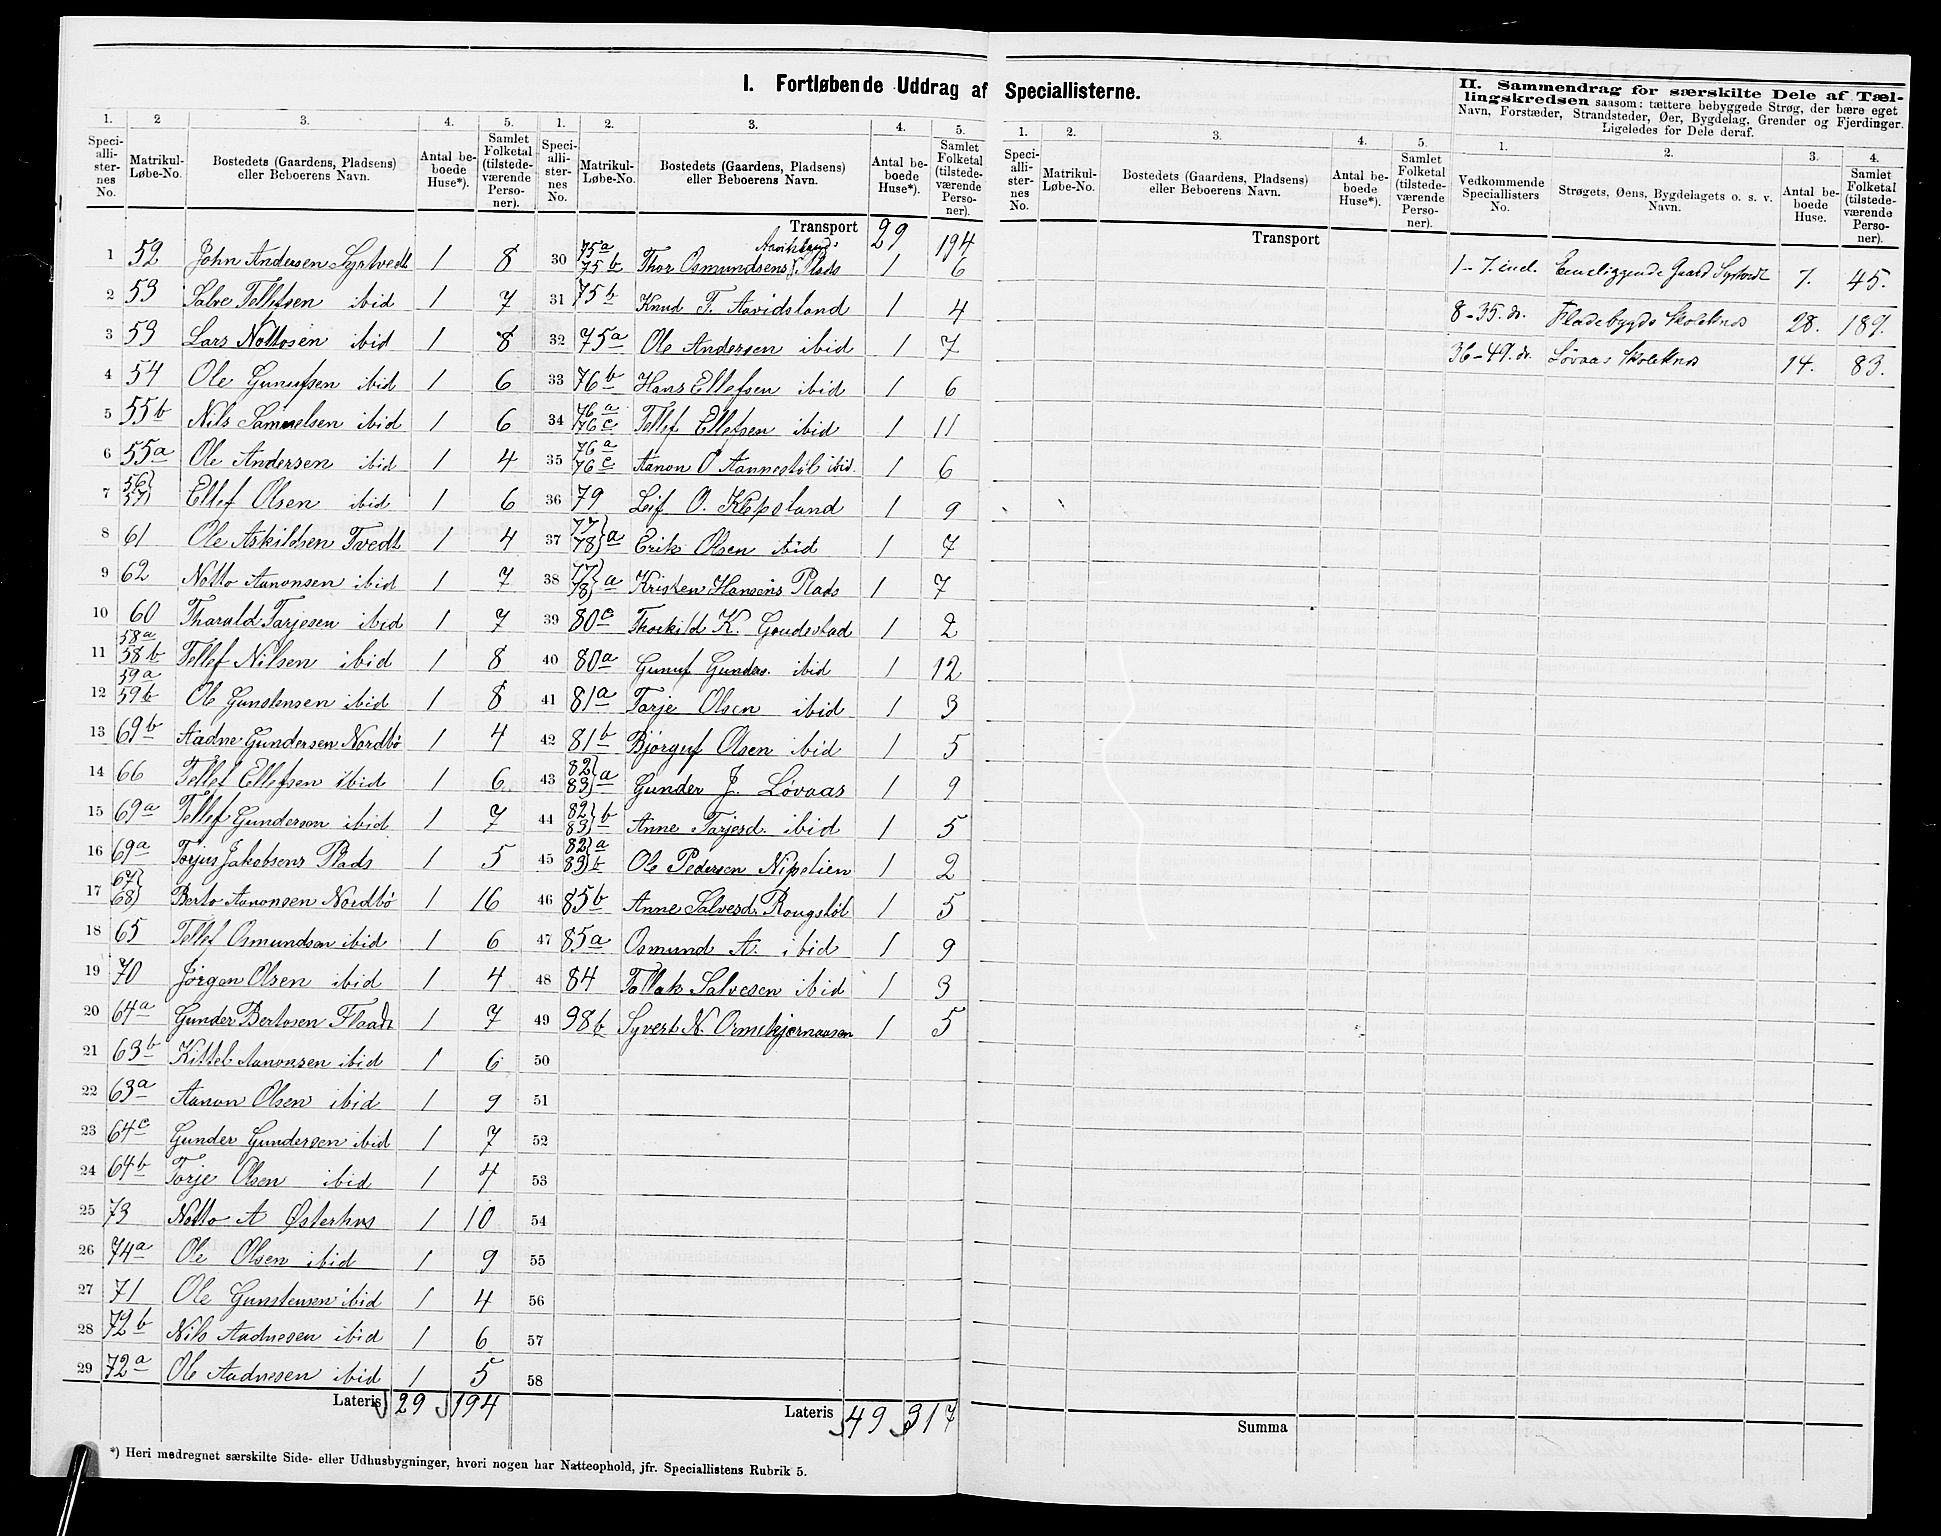 I. Fortløbende Uddrag af Speciallisterne.
1. 2 3. 4. 5.
Speci-alli-ster-nes No. Matrikul-Løbe-No. Bostedets (Gaardens, Pladsens) eller Beboerens Navn. Antal be-boede Huse*). Samlet Folketal (tilstede-værende Perso-ner).
1 52 John Andersen Syrtvedt 1 8
2 53 Salve Tellefsen ibid 1 7
3 53 Lars Nottosen ibid 1 8
4 54 Ole Gunufsen ibid 1 6
5 55b Nils Samuelsen ibid 1 6
6 55a Ole Andersen ibid 1 4
7 56 57 Ellef Olsen ibid 1 6
8 61 Ole Askildsen Tvedt 1 4
9 62 Notto Aanonsen ibid 1 7
10 60 Tharald Tarjesen ibid 1 7
11 58a 58b Tellef Nilsen ibid 1 8
12 59a 59b Ole Gunstensen ibid 1 8
13 69b Aadne Gundersen Nordbø 1 4
14 66 Tellef Ellefsen ibid 1 6
15 69a Tellef Gunderson ibid 1 7
16 69a Torjus Jakobsens Plads 1 5
17 67 68 Berto Aanonsen Nordbø 1 16
18 65 Tellef Osmundsen ibid 1 6
19 70 Jørgen Olsen ibid 1 4
20 64a Gunder Bertosen Flaadt 1 7
21 63b Kittel Aanonsen ibid 1 6
22 63a Aanon Olsen ibid 1 9
23 64c Gunder Gundersen ibid 1 7
24 64b Torje Olsen ibid 1 4
25 73 Notto A Østerhus 1 10
26 74a Ole Olsen ibid 1 9
27 71 Ole Gunstensen ibid 1 4
28 72b Nils Aadnesen ibid 1 6
29 72a Ole Aadnesen ibid 1 5
Lateris 29 194
*) Heri medregnet særskilte Side- eller Udhusbygninger, hvori nogen har Natteophold, jfr. Speciallistens Rubrik 5.
1. 2. 3. 4. 5.
Speci-alli-ster-nes No. Matrikul-Løbe-No. Bostedets (Gaardens, Pladsens) eller Beboerens Navn. Antal be-boede Huse*). Samlet Folketal (tilstede-værende Perso-ner).
Transport 29 194
30 75a 75b Thor Osmundsens Plads 1 6
31 75b Knud T. Aavidsland 1 4
32 75a Ole Andersen ibid 1 7
33 76b Hans Ellefsen ibid 1 6
34 76a 76c Tellef Ellefsen ibid 1 11
35 76a 76c Aanon O Aannestøl ibid. 1 6
36 79 Leif O. Klepsland 1 9
37 77 78 a Erik Olsen ibid 1 7
38 77 78 a Kristen Hansens Plads 1 7
39 80c Thorkild K. Goudestad 1 2
40 80a Gunuf Gunders. ibid 1 12
41 81a Tarje Olsen ibid 1 3
42 81b Bjørguf Olsen ibid 1 5
43 82 83 a Gunder J. Løvaas 1 9
44 82 83 b Anne Tarjesd. ibid 1 5
45 82 a 83 b Ole Pedersen Nipelien 1 2
46 85b Anne Salvesd. Rougstøl 1 5
47 85a Osmund A. ibid 1 9
48 84 Tallak Salvesen ibid 1 3
49 98b Syvert N. Ormekjernaasen 1 5
50
51
52
53
54
55
56
57
58
Lateris 49 317
1. 2. 3. 4. 5.
Speci-alli-ster-nes No. Matrikul-Løbe-No. Bostedets (Gaardens, Pladsens) eller Beboerens Navn. Antal be-boede Huse*). Samlet Folketal (tilstede-værende Perso-ner).
Transport
Summa
II. Sammendrag for særskilte Dele af Tæl-
lingskredsen saasom: tættere bebyggede Strøg, der bære eget
Navn, Forstæder, Strandsteder, Øer, Bygdelag, Grender og Fjerdinger.
Ligeledes for Dele deraf.
1. 2. 3. 4.
Vedkommende Speciallisters No. Strøgets, Øens, Bygdelagets o. s. v. Navn. Antal be-boede Huse. Samlet Folketal (tilstede-værende Perso-ner).
1-7. incl. Eensliggende Gaard Syrtvedt 7. 45.
8-35. do. Fladebygds Skolekrds 28. 189.
36-49. do. Løvaas Skolekrds 14. 83.